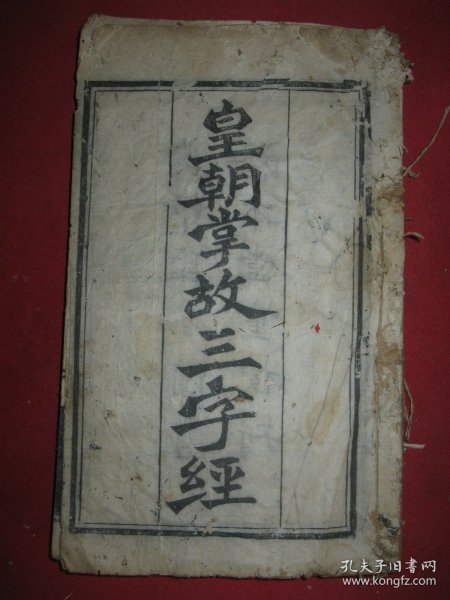 皇朝掌故三字經
孔夫子旧书网
www.kongfz.com